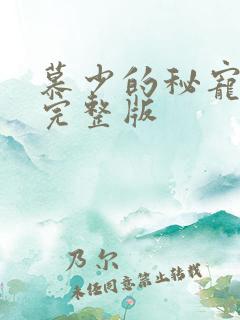 慕少的秘寵
完整版
乃尔
未经同意禁止转载